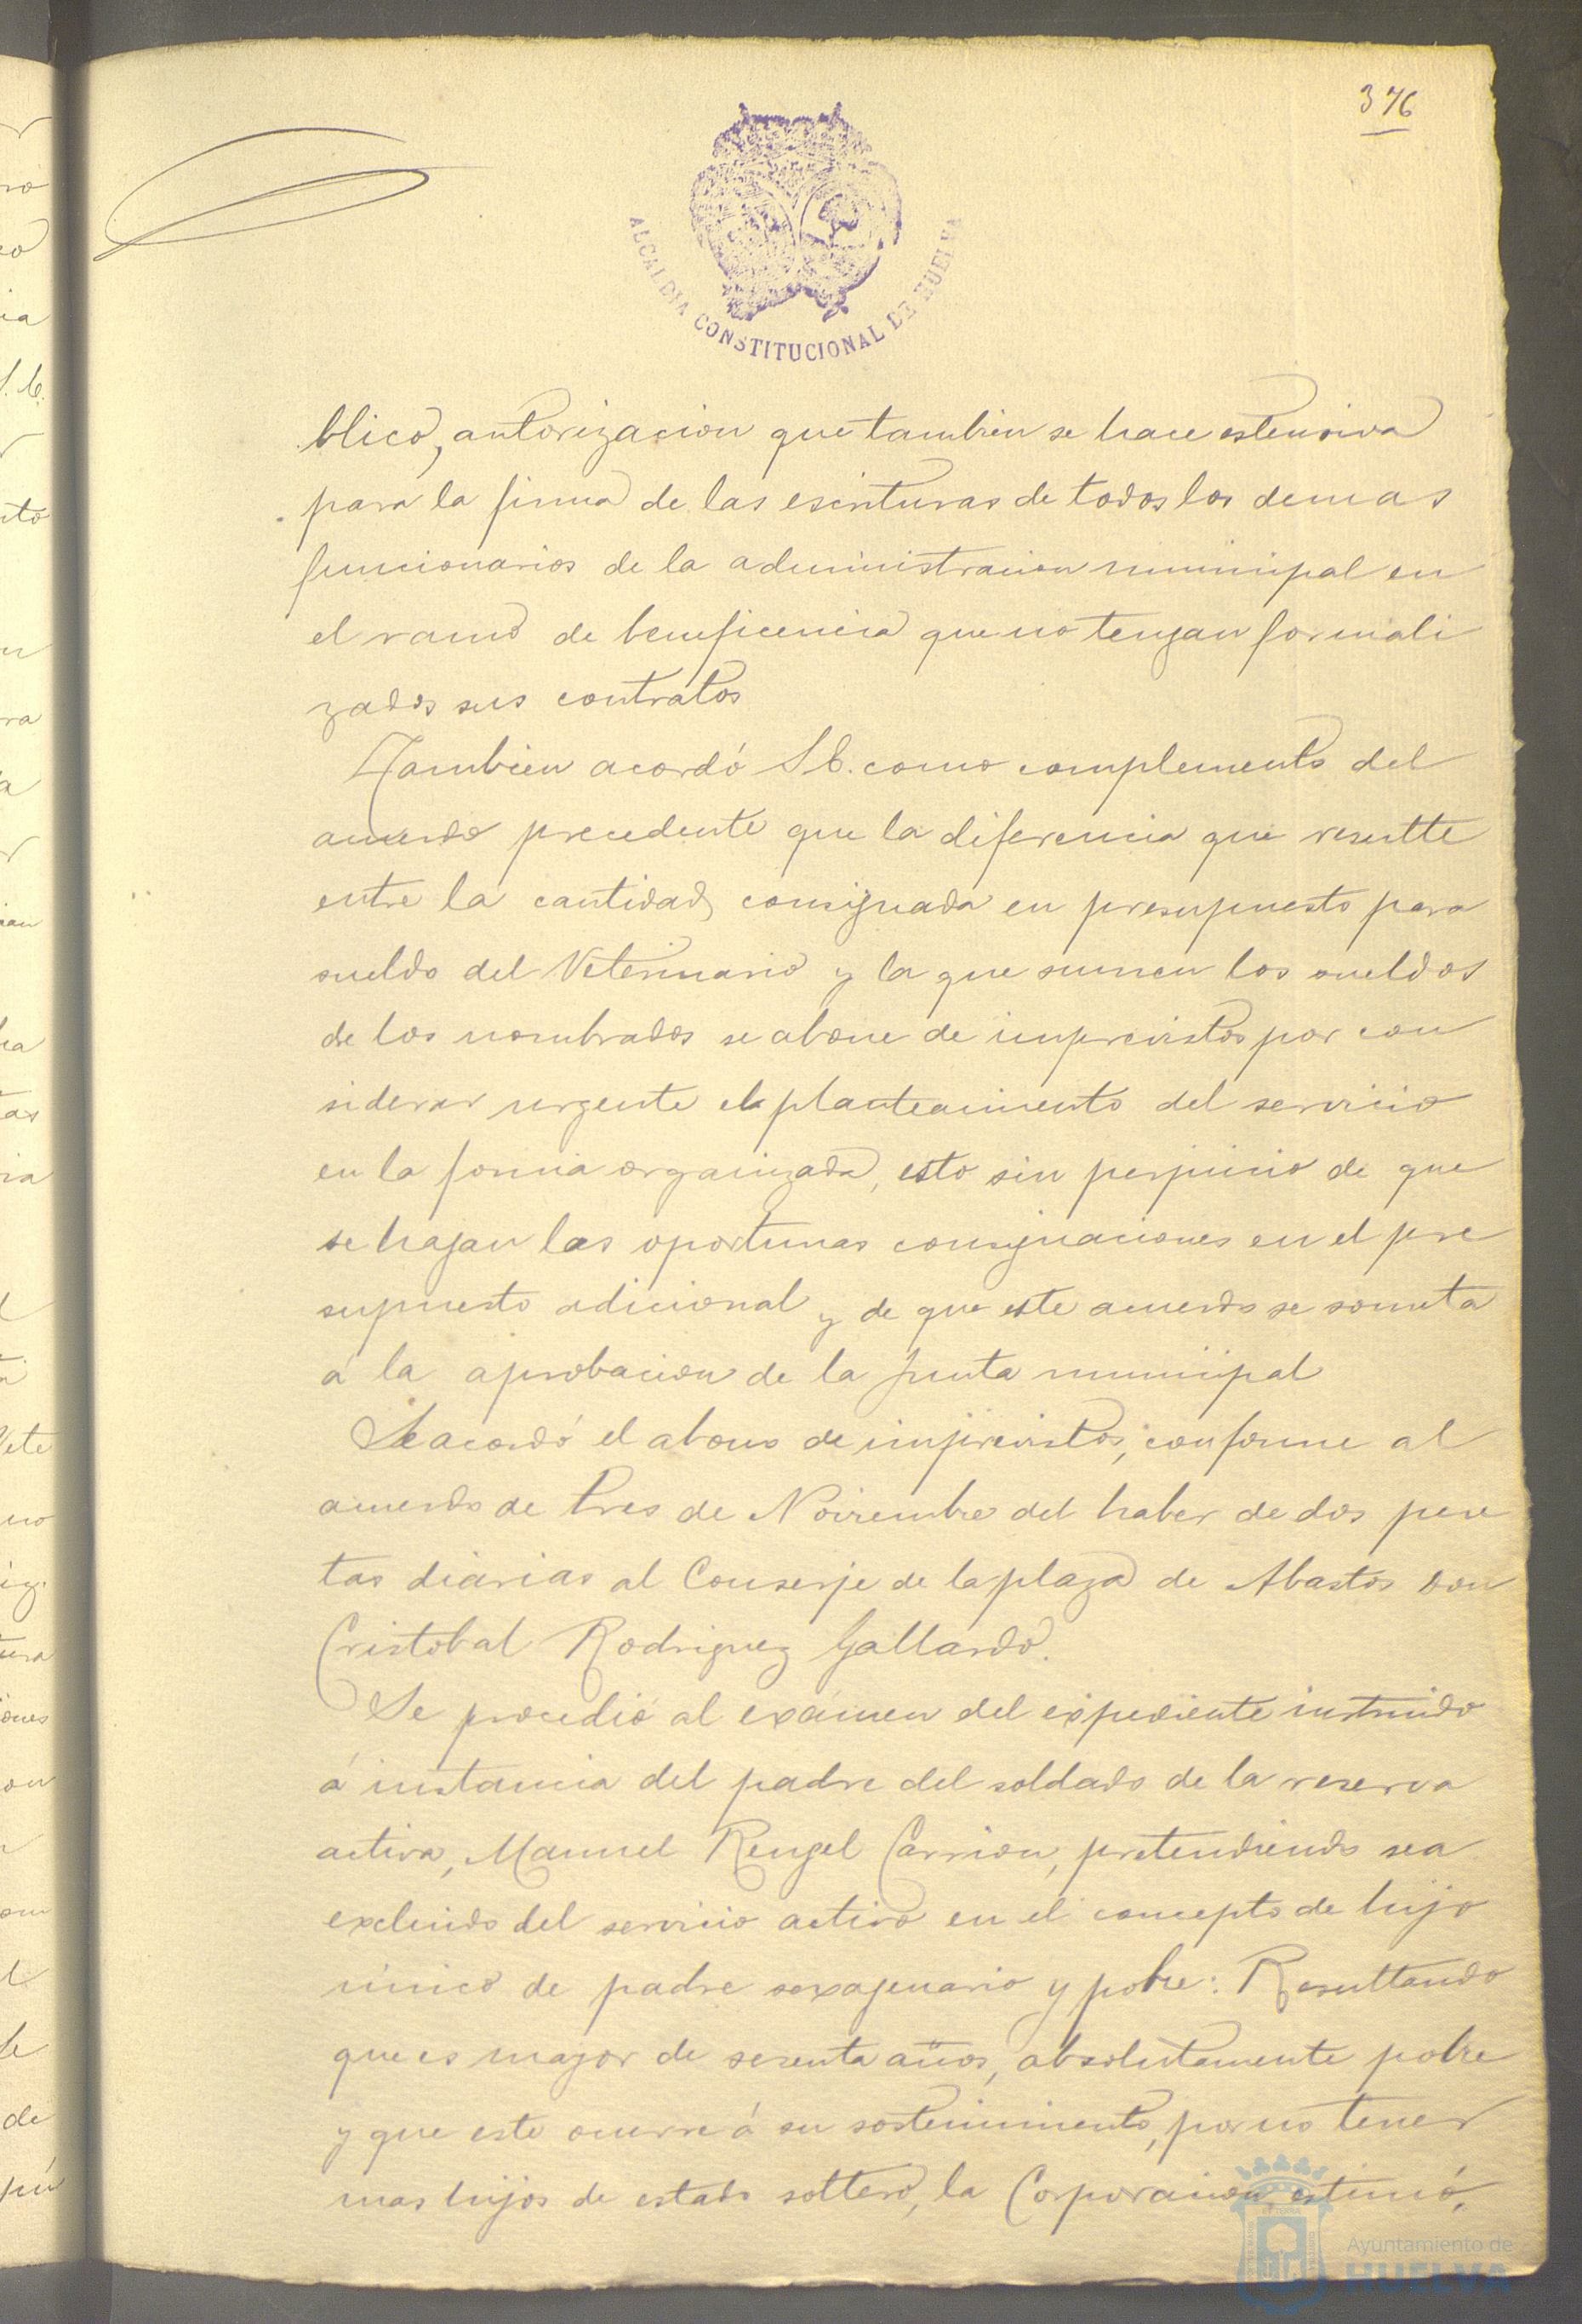 376
ALCALDIA CONSTITUCIONAL DE HUELVA
blico, autorizacion que tambien se hace estensiva
para la firma de las escrituras de todos los demas
funcionarios de la administracion municipal en
el ramo de beneficencia que no tengan formali
zados sus contratos
Tambien acordó S.E. como complemento del
acuerdo precedente que la diferencia que resulte
entre la cantidad consignada en presupuesto para
sueldo del Veterinario y la que sumen los sueldos
de los nombrados se abone de imprevistos por con
siderar urgente el planteamiento del servicio
en la forma organizada, esto sin perjuicio de que
se hagan las oportunas consignaciones en el pre
supuesto adicional y de que este acuerdo se someta
á la aprobacion de la Junta municipal
Se acordó el abono de imprevistos, conforme al
acuerdo de tres de Noviembre del haber de dos pese
tas diarias al Conserje de la plaza de Abastos don
Cristobal Rodriguez Gallardo.
Se procedió al exámen del expediente instruido
á instancia del padre del soldado de la reserva
activa, Manuel Rengel Carrion, pretendiendo sea
excluido del servicio activo en el concepto de hijo
único de padre sexagenario y pobre: Resultando
que es mayor de sesenta años, absolutamente pobre
y que este ocurre á su sostenimiento, por no tener
mas hijos de estado soltero, la Corporacion estimó,
Ayuntamiento de
HUELVA